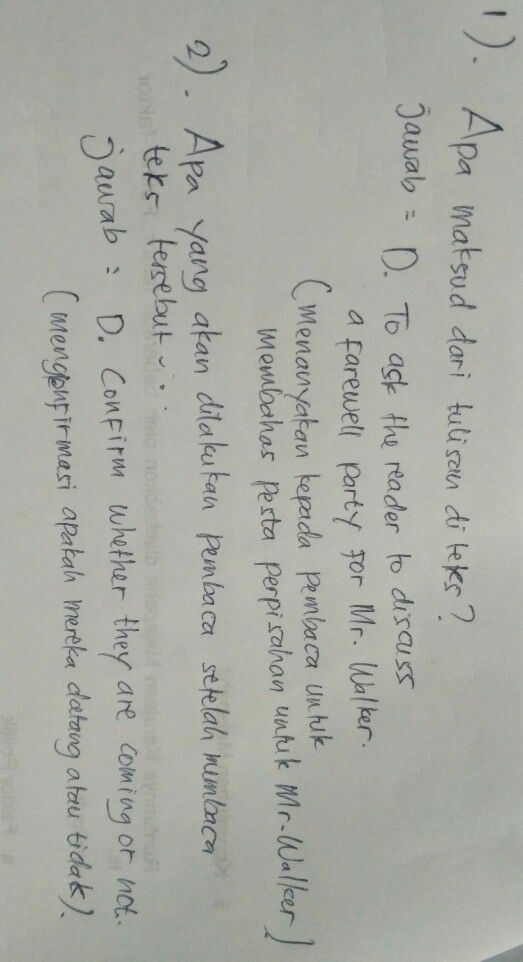 1). Apa maksud dari tulisan di teks?
jawab = D. To ask the reader to discuss
a farewell party for Mr. Walker.
(menanyakan kepada pembaca untuk
membahas pesta perpisahan untuk Mr. Walker)
2). Apa yang akan dilakukan pembaca setelah membaca
teks tersebut...
jawab = D. Confirm whether they are coming or not.
(mengonfirmasi apakah mereka datang atau tidak).